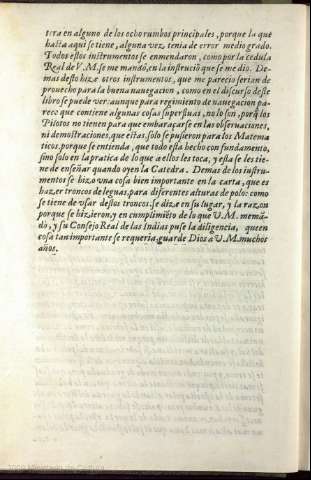 tira en alguno de los ocho rumbos principales, porque la que
hasta aqui se tiene, alguna vez tenia de error medio grado.
Todos estos instrumentos se enmendaron, como por la cedula
Real de V.M. se me mandò, en la instruciõ que se me dio. De-
mas desto hize otros instrumentos, que me parecio serian de
prouecho para la buena nauegacion, como en el discurso deste
libro se puede ver: aunque para regimiento de nauegacion pa-
rece que contiene algunas cosas superfluas, no lo son, porq̃ los
Pilotos no tienen para que embaraçarse en las obseruaciones,
ni demostraciones, que estas, solo se pusieron para los Matema
ticos, porque se entienda, que todo està hecho con fundamento,
sino solo en la pratica de lo que a ellos les toca, y esta se les tie-
ne de enseñar quando oyen la Catedra. Demas de los instru-
mentos se hizo vna cosa bien importante en la carta, que es
hazer troncos de leguas, para diferentes alturas de polo: como
se tiene de vsar destos troncos, se dize en su lugar, y la razon
porque se hizieron, y en cumplimiẽto de lo que V.M. memã-
dò, y su Consejo Real de las Indias puse la diligencia, que en
cosa tan importante se requeria. guarde Dios a V.M. muchos
años.